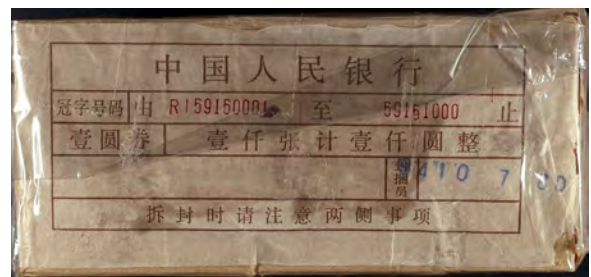 中国人民银行
冠字号码 由 R159150001 至 59151000 止
壹圆券 壹仟张计壹仟圆整
员
拆封时请注意两侧事项